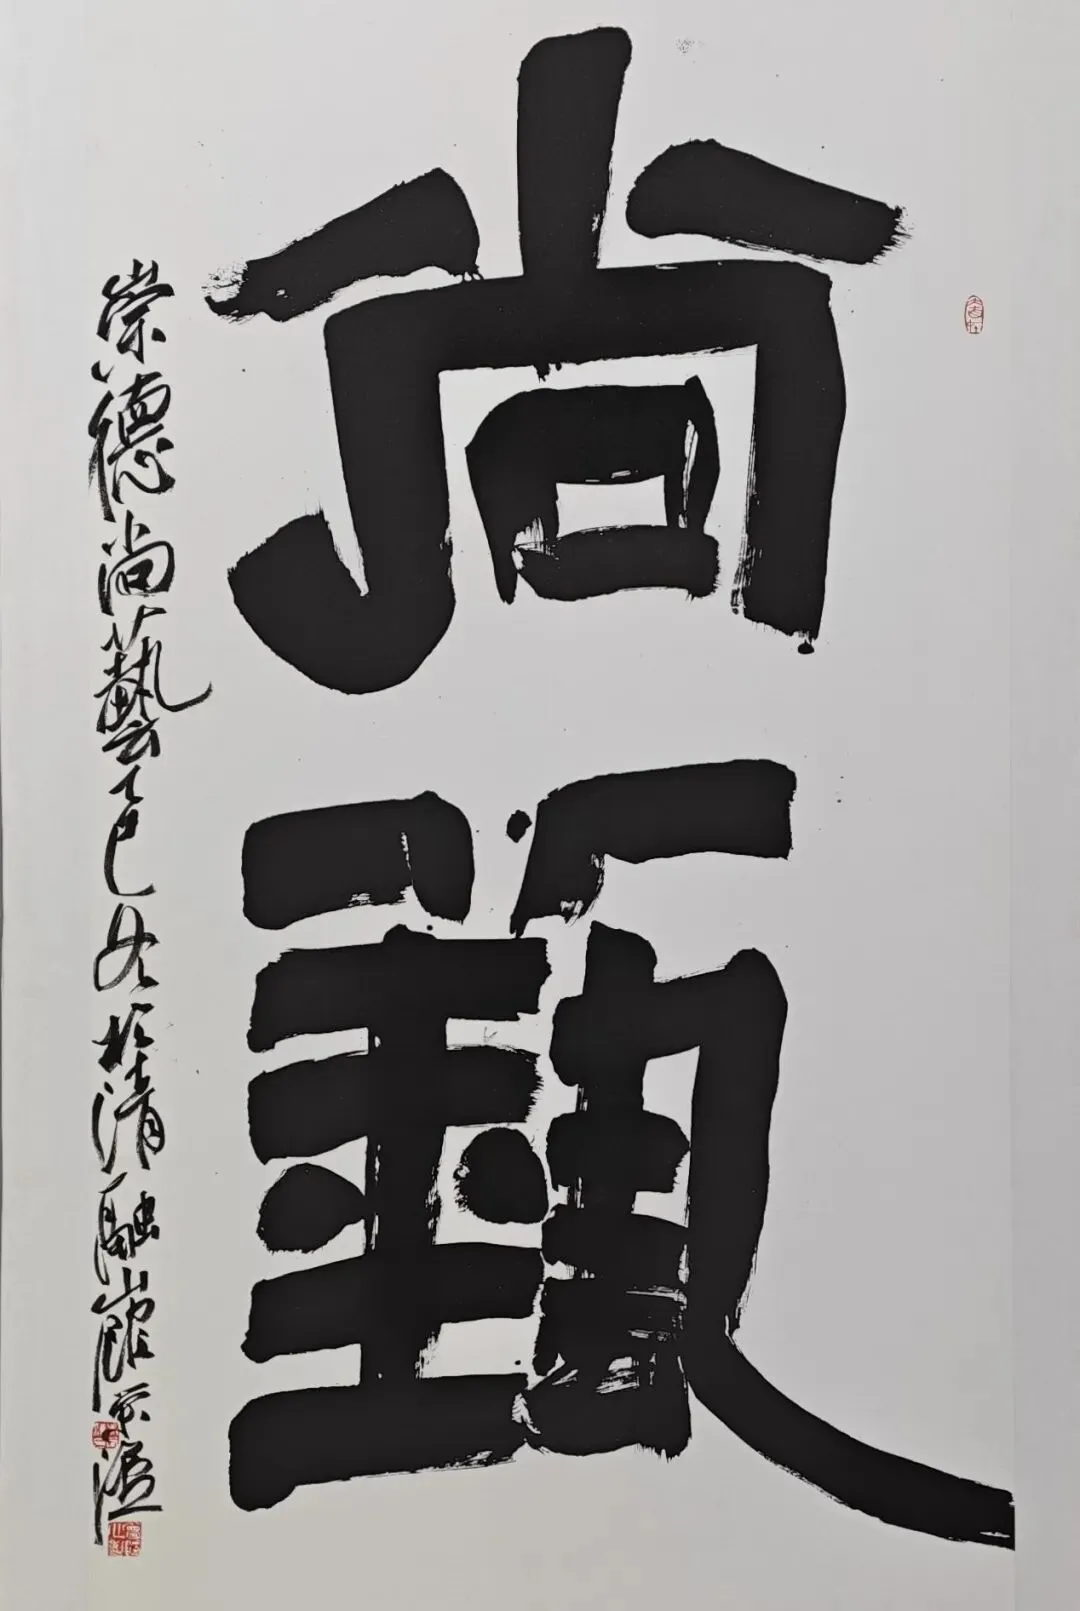 尚藝
崇德尚藝乙巳冬於清融山館